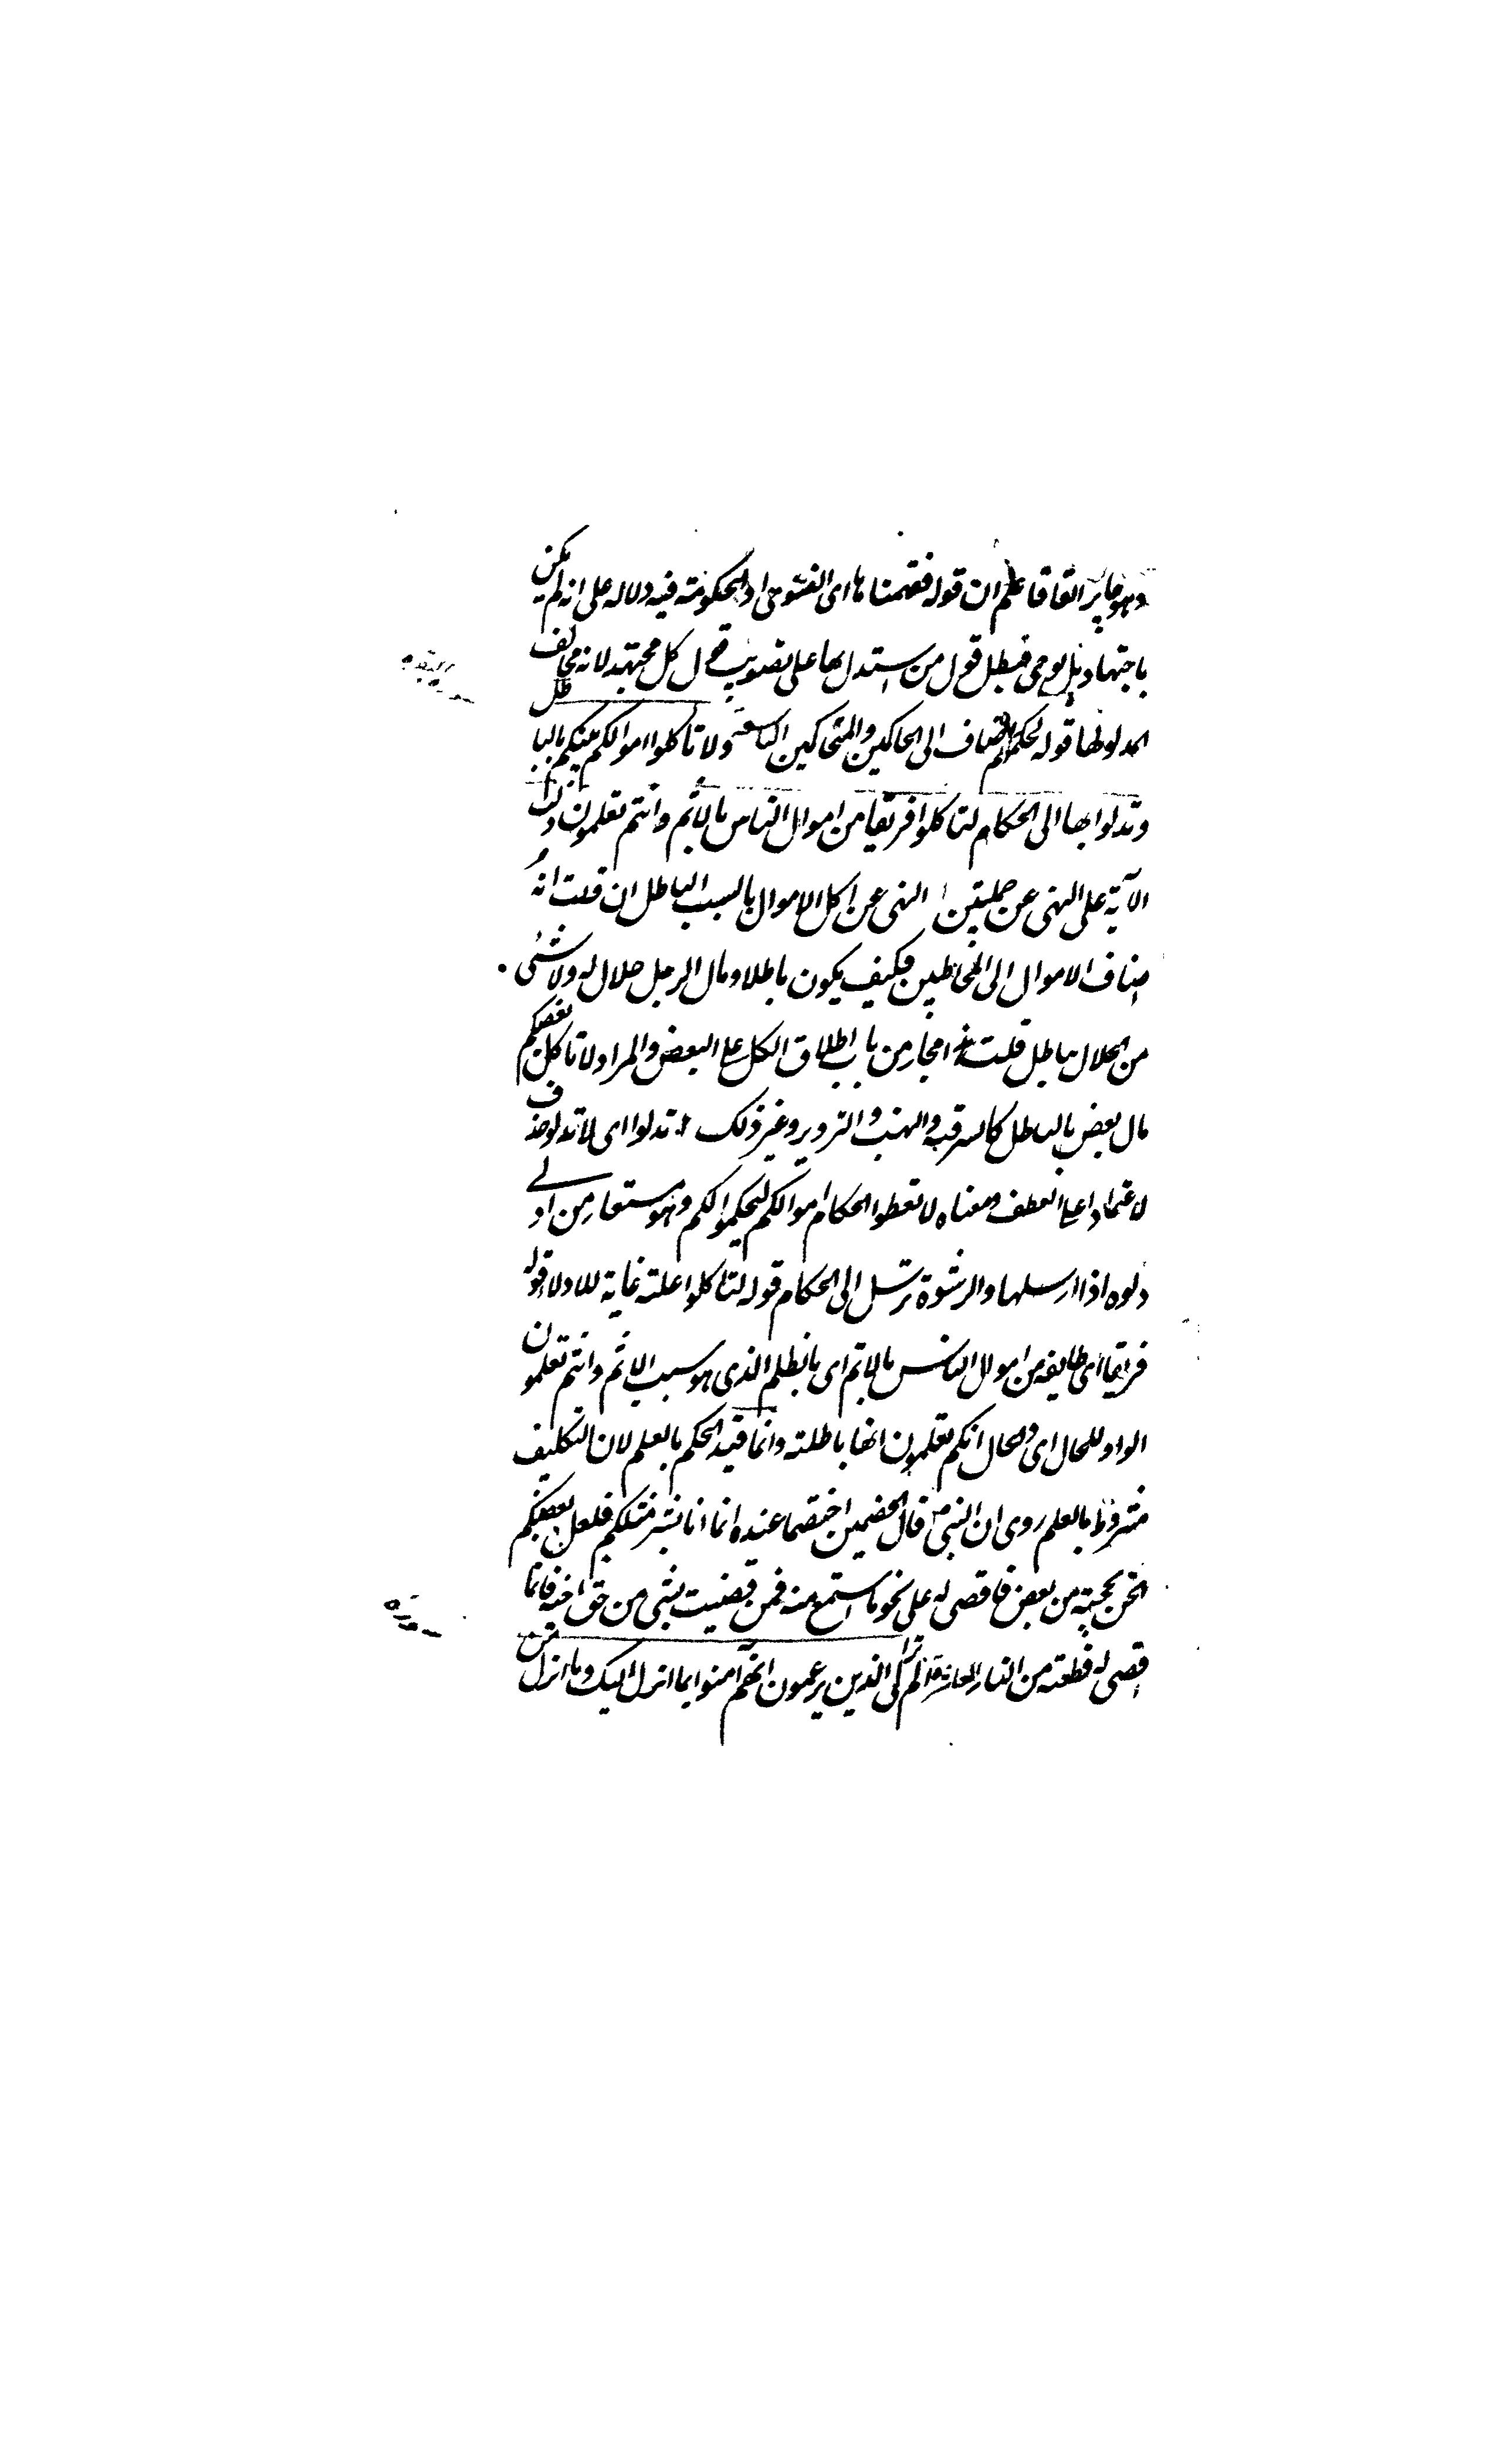 وهو جايز اتفاقا علم ان قوله ففهمناها اى الفتوى او الحكومة فيه دلاله على انه لم يكن
باجتهاد بل بوحى فبطل قول من استدل بها على تصويب قول كل مجتهد لانه مخالف
لمدلولها قوله لحكمهم اضاف الى الحاكمين والمتحاكمين التاسعة ولا تاكلوا اموالكم بينكم بالباطل
وتدلوا بها الى الحكام لتاكلوا فريقا من اموال الناس بالاثم وانتم تعلمون دلت
الآية على النهى عن جملتين ا النهى عن اكل الاموال بالسبب الباطل ان قلت انه
اضاف الاموال الى المخاطبين فكيف يكون باطلا ومال الرجل حلال له ولا شئ
من الحلال بباطل قلت امجاز من باب اطلاق الكل على البعض والمراد لا تاكل بعضكم
مال بعض بالباطل كالسرقة والنهب والتزوير وغير ذلك تدلوا اى لا تدلو حذف
لاعتماد على العطف ومعناه لا تعطوا الحكام اموالكم ليحكموا لكم وهو مستعار من ادلى
دلوه اذا ارسلها والرشوة ترسل الى الحكام قوله لتاكلوا علته غاية للادلا قوله
فريقا اى طايفه من اموال الناس بالاثم اى بالظلم الذى هو سبب الاثم وانتم تعلمون
الواو للحال اى والحال انكم تعلمون انها باطلته وانما قيد الحكم بالعلم لان التكليف
مشروط بالعلم روى ان النبى ص قال لخصمين اختصما عنده انما انا بشر مثلكم فلعل بعضكم
الحن بحجته من بعض فاقضى له على نحو ما استمع منه فمن قضيت بشى من حق اخيه فانما
اقضى له قطعته من النار العاشرة الم تر الى الذين يزعمون انهم آمنوا بما انزل اليك وما انزل من